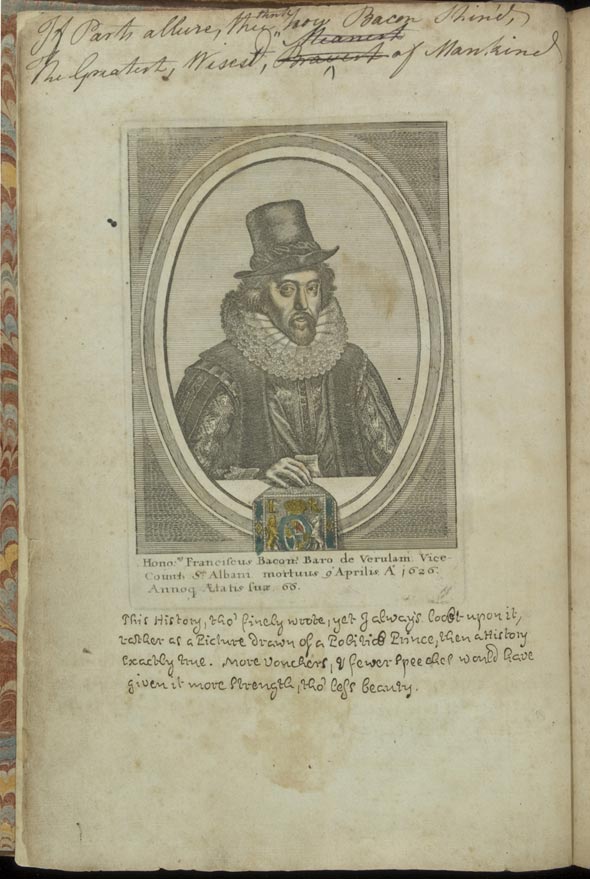 If Parts allure, thee think how Bacon Shin'd,
Meanest
The Greatest, Wisest, Bravest of Mankind
Hono.ͫ Franciscus Bacon. Baro de Verulam. Vice-
Comes Sti Albani mortuus 9 Aprilis Aͦ 1626.
Annoq Ætatis suæ 66.
This History, tho' finely wrote, yet I always look't upon it,
rather as a Picture drawn of a Politick Prince, then a History
exactly true. More Vouchers, & fewer Speeches would have
given it more strength, tho' less beauty.